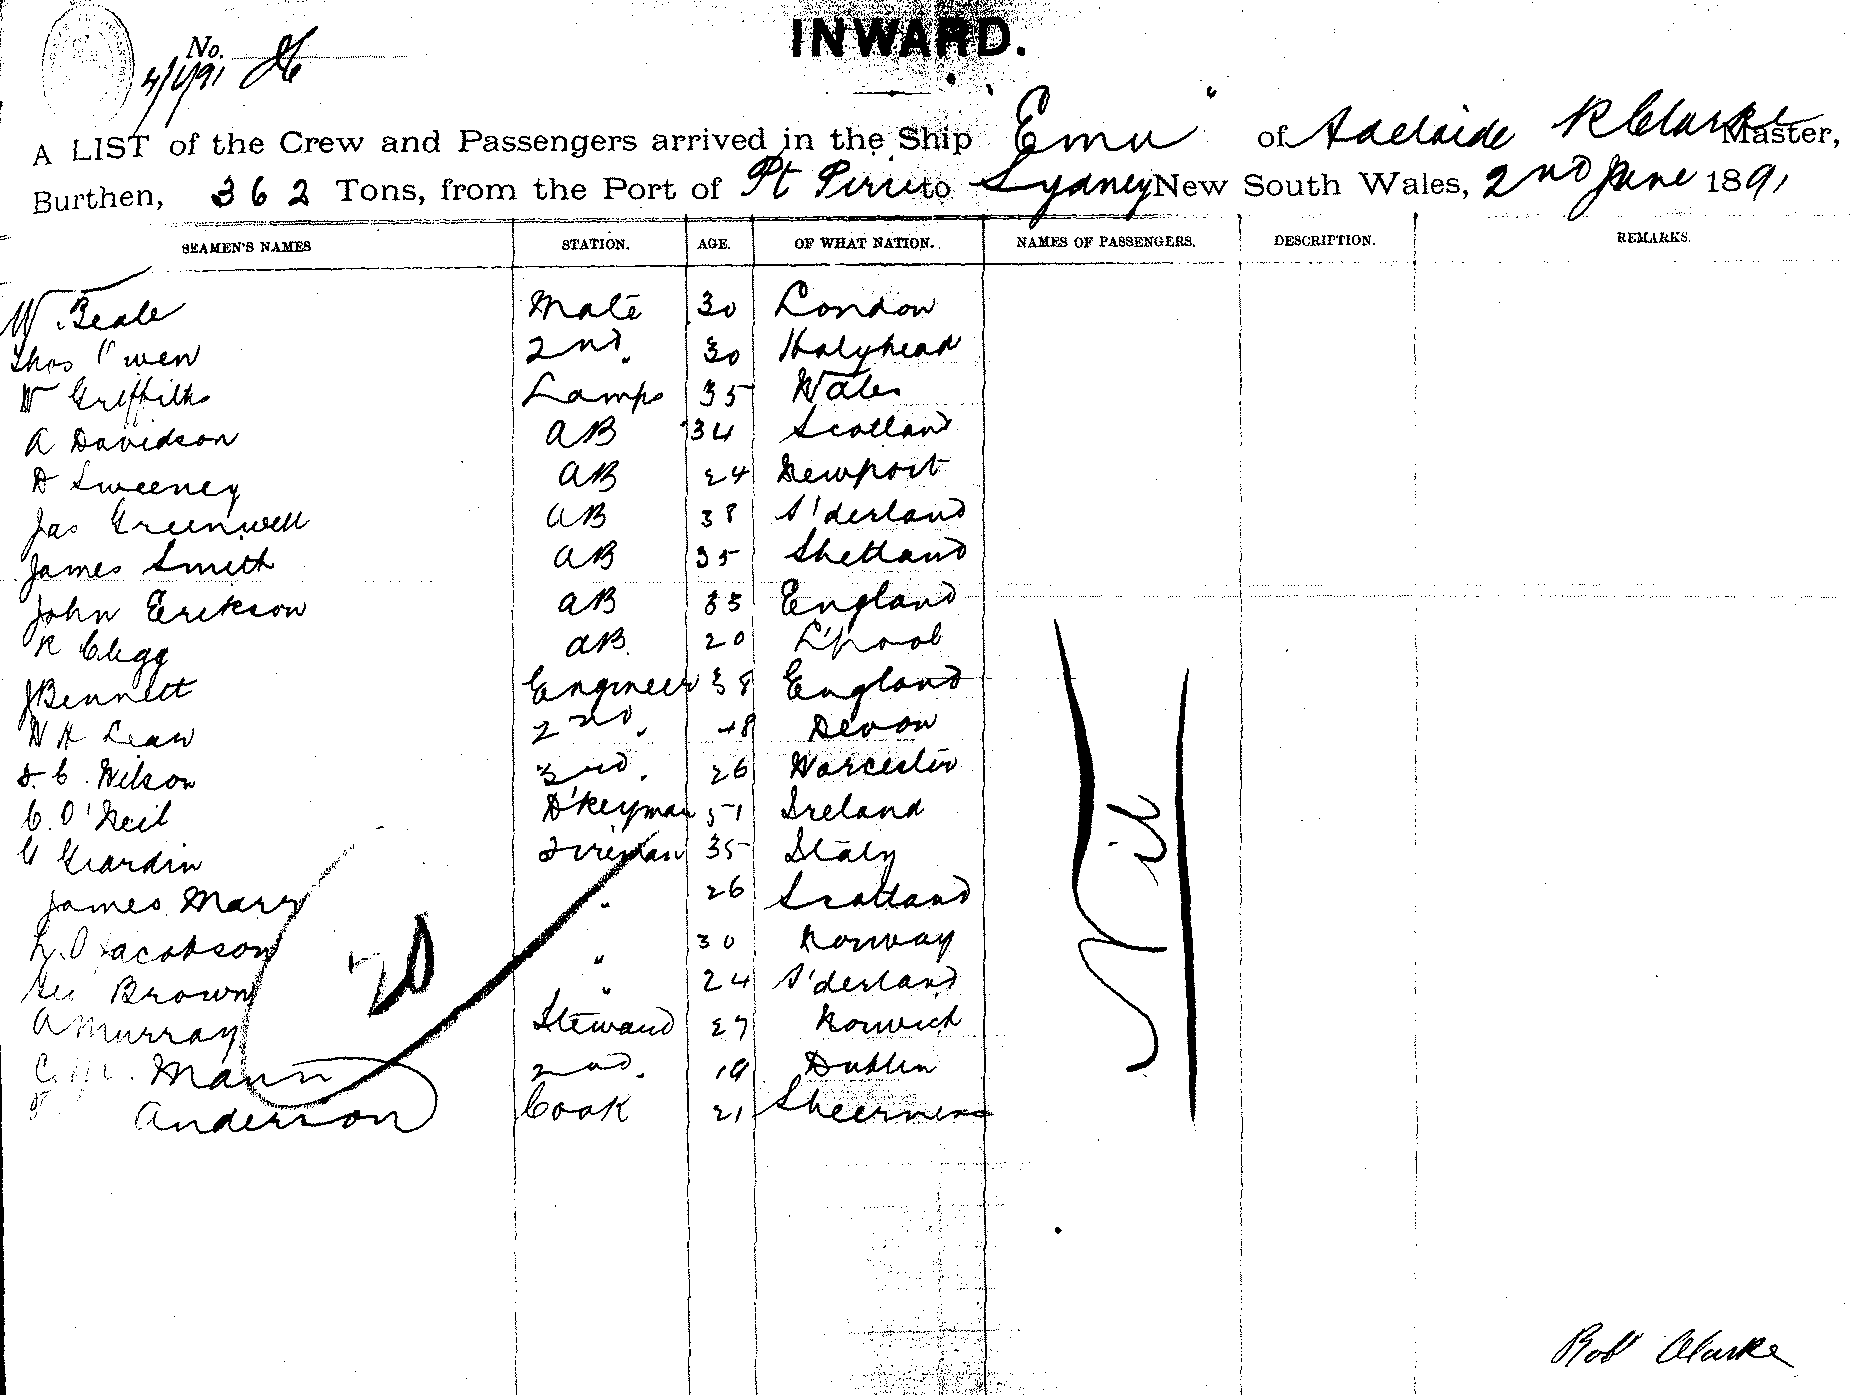 INWARD.
No.
4/6/91
A LIST of the Crew and Passengers arrived in the Ship "Emu" of Adelaide R Clarke Master,
Burthen, 362 Tons, from the Port of Pt Pirie to Sydney New South Wales, 2nd June 1891
SEAMEN'S NAMES STATION. AGE. OF WHAT NATION. NAMES OF PASSENGERS. DESCRIPTION. REMARKS.
W. Beale Mate 30 London
Thos Owen 2nd. 30 Holyhead
W Griffiths Lamps 35 Wales
A Davidson AB 34 Scotland
D Sweeney AB 24 Newport
Jas Greenwell AB 38 S'derland
James Smith AB 35 Shetland
John Erikson AB 33 England
R Clegg AB. 20 L'pool
J Bennett Engineer 38 England
W H Lean 2nd. 48 Devon
Wilson 3rd. 26 Worcester
C. O'Neil D'keyman 51 Ireland
G Giardin Fireman 35 Italy
James Marr " 26 Scotland
Jacobson " 30 Norway
Geo Brown " 24 S'derland
A Murray Steward 27 Norwich
Mann 2nd. 19 Dublin
Anderson Cook 21 Sheerness
20
Nil
Rob Clarke